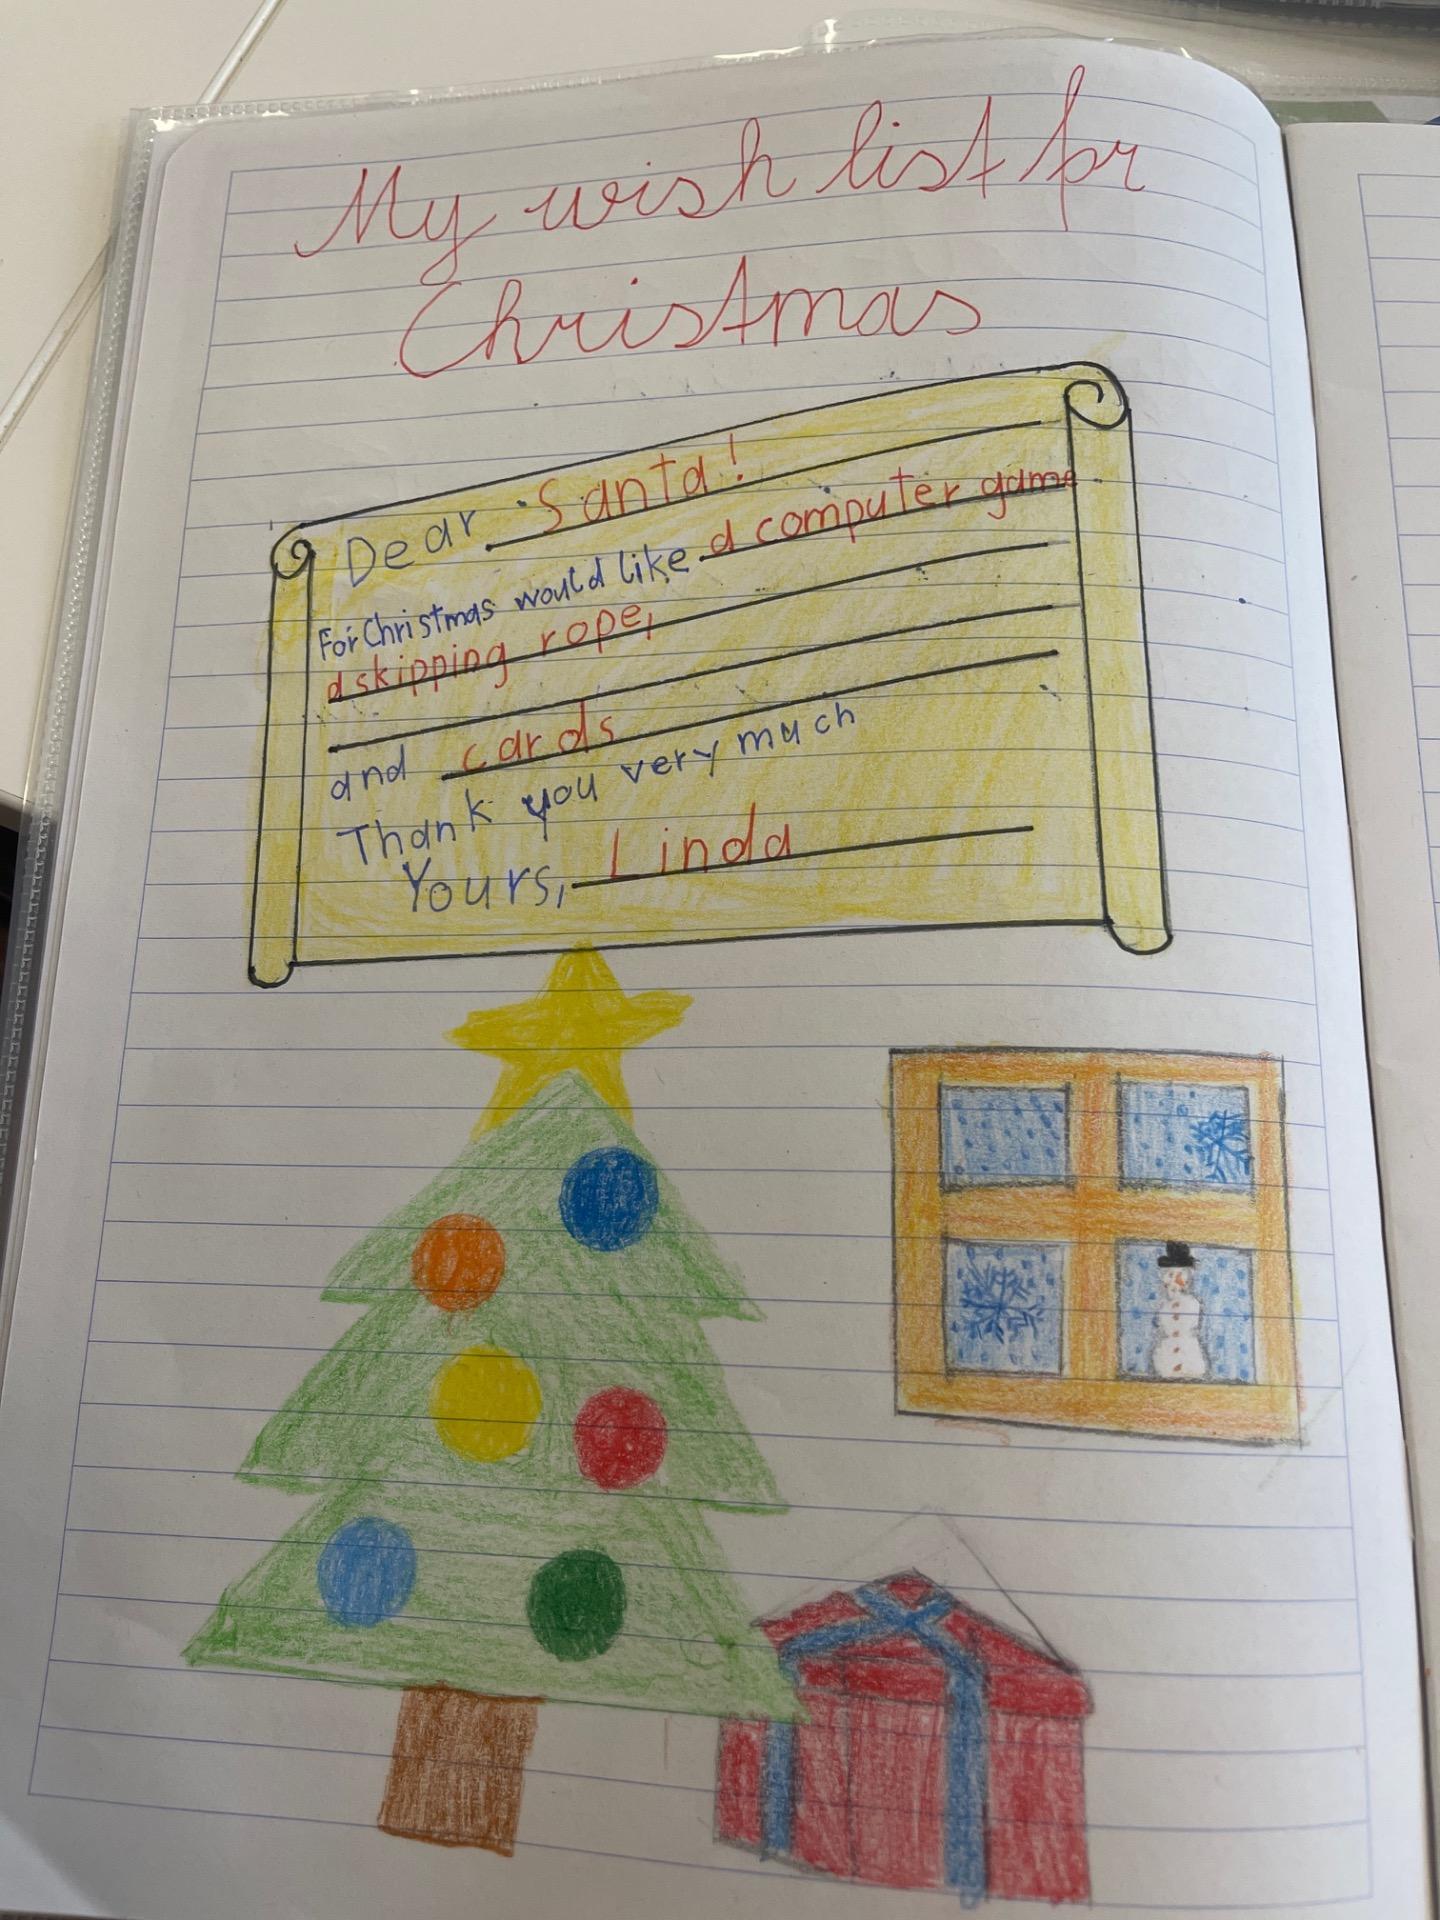 My wish list for
Christmas
Dear Santa!
For Christmas would like a computer game
a skipping rope,
and cards
Thank you very much
Yours, Linda